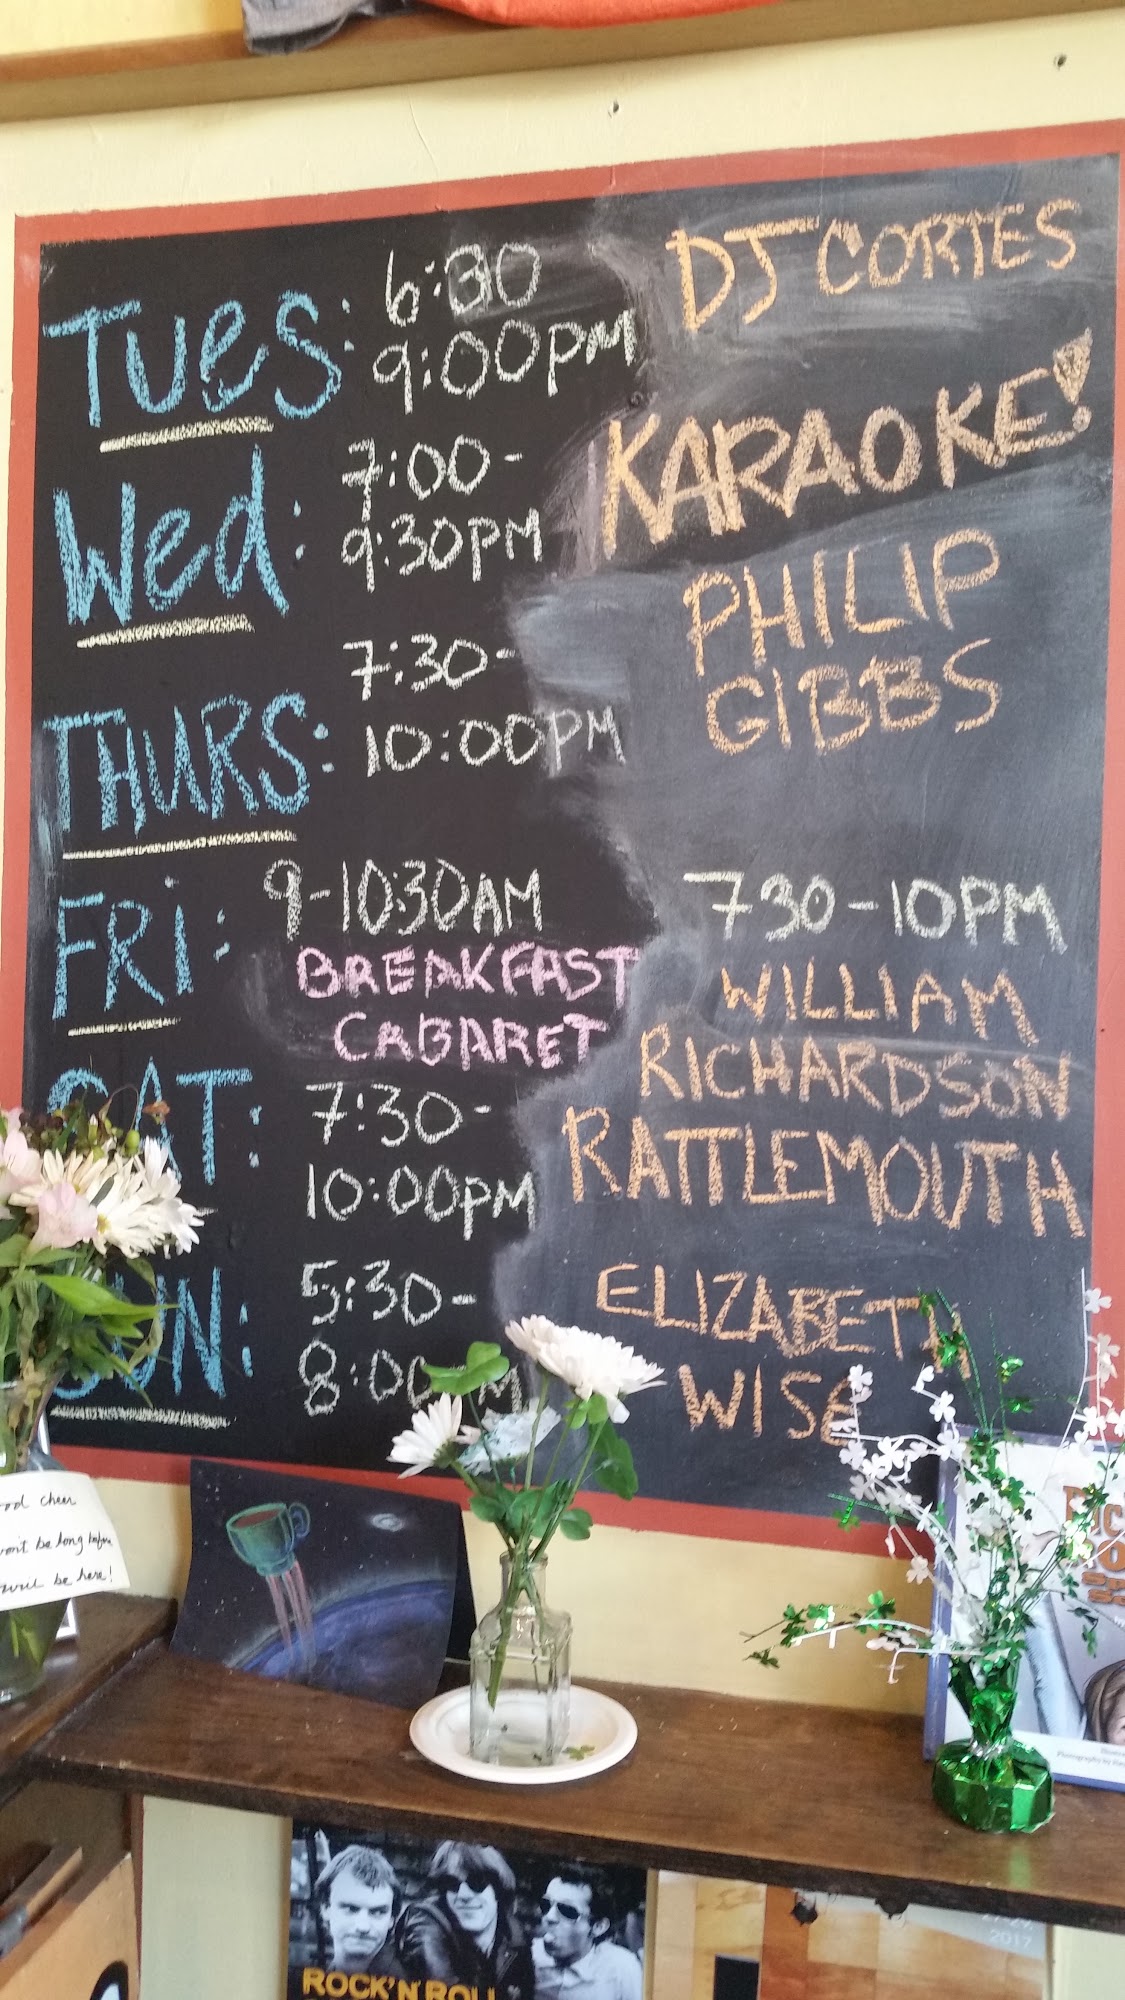 TUES: 6:30 DJ CORTES
9:00PM
Wed: 7:00- KARAOKE!
9:30PM
THURS: 7:30- PHILIP
10:00PM GIBBS
FRI: 9-10:30AM 730-10PM
BREAKFAST WILLIAM
CABARET RICHARDSON
SAT: 7:30- RATTLEMOUTH
10:00PM
SUN: 5:30- ELIZABETH
8:00PM WISE
cheer
be long before
be here!
ROCK'N'ROLL
2017